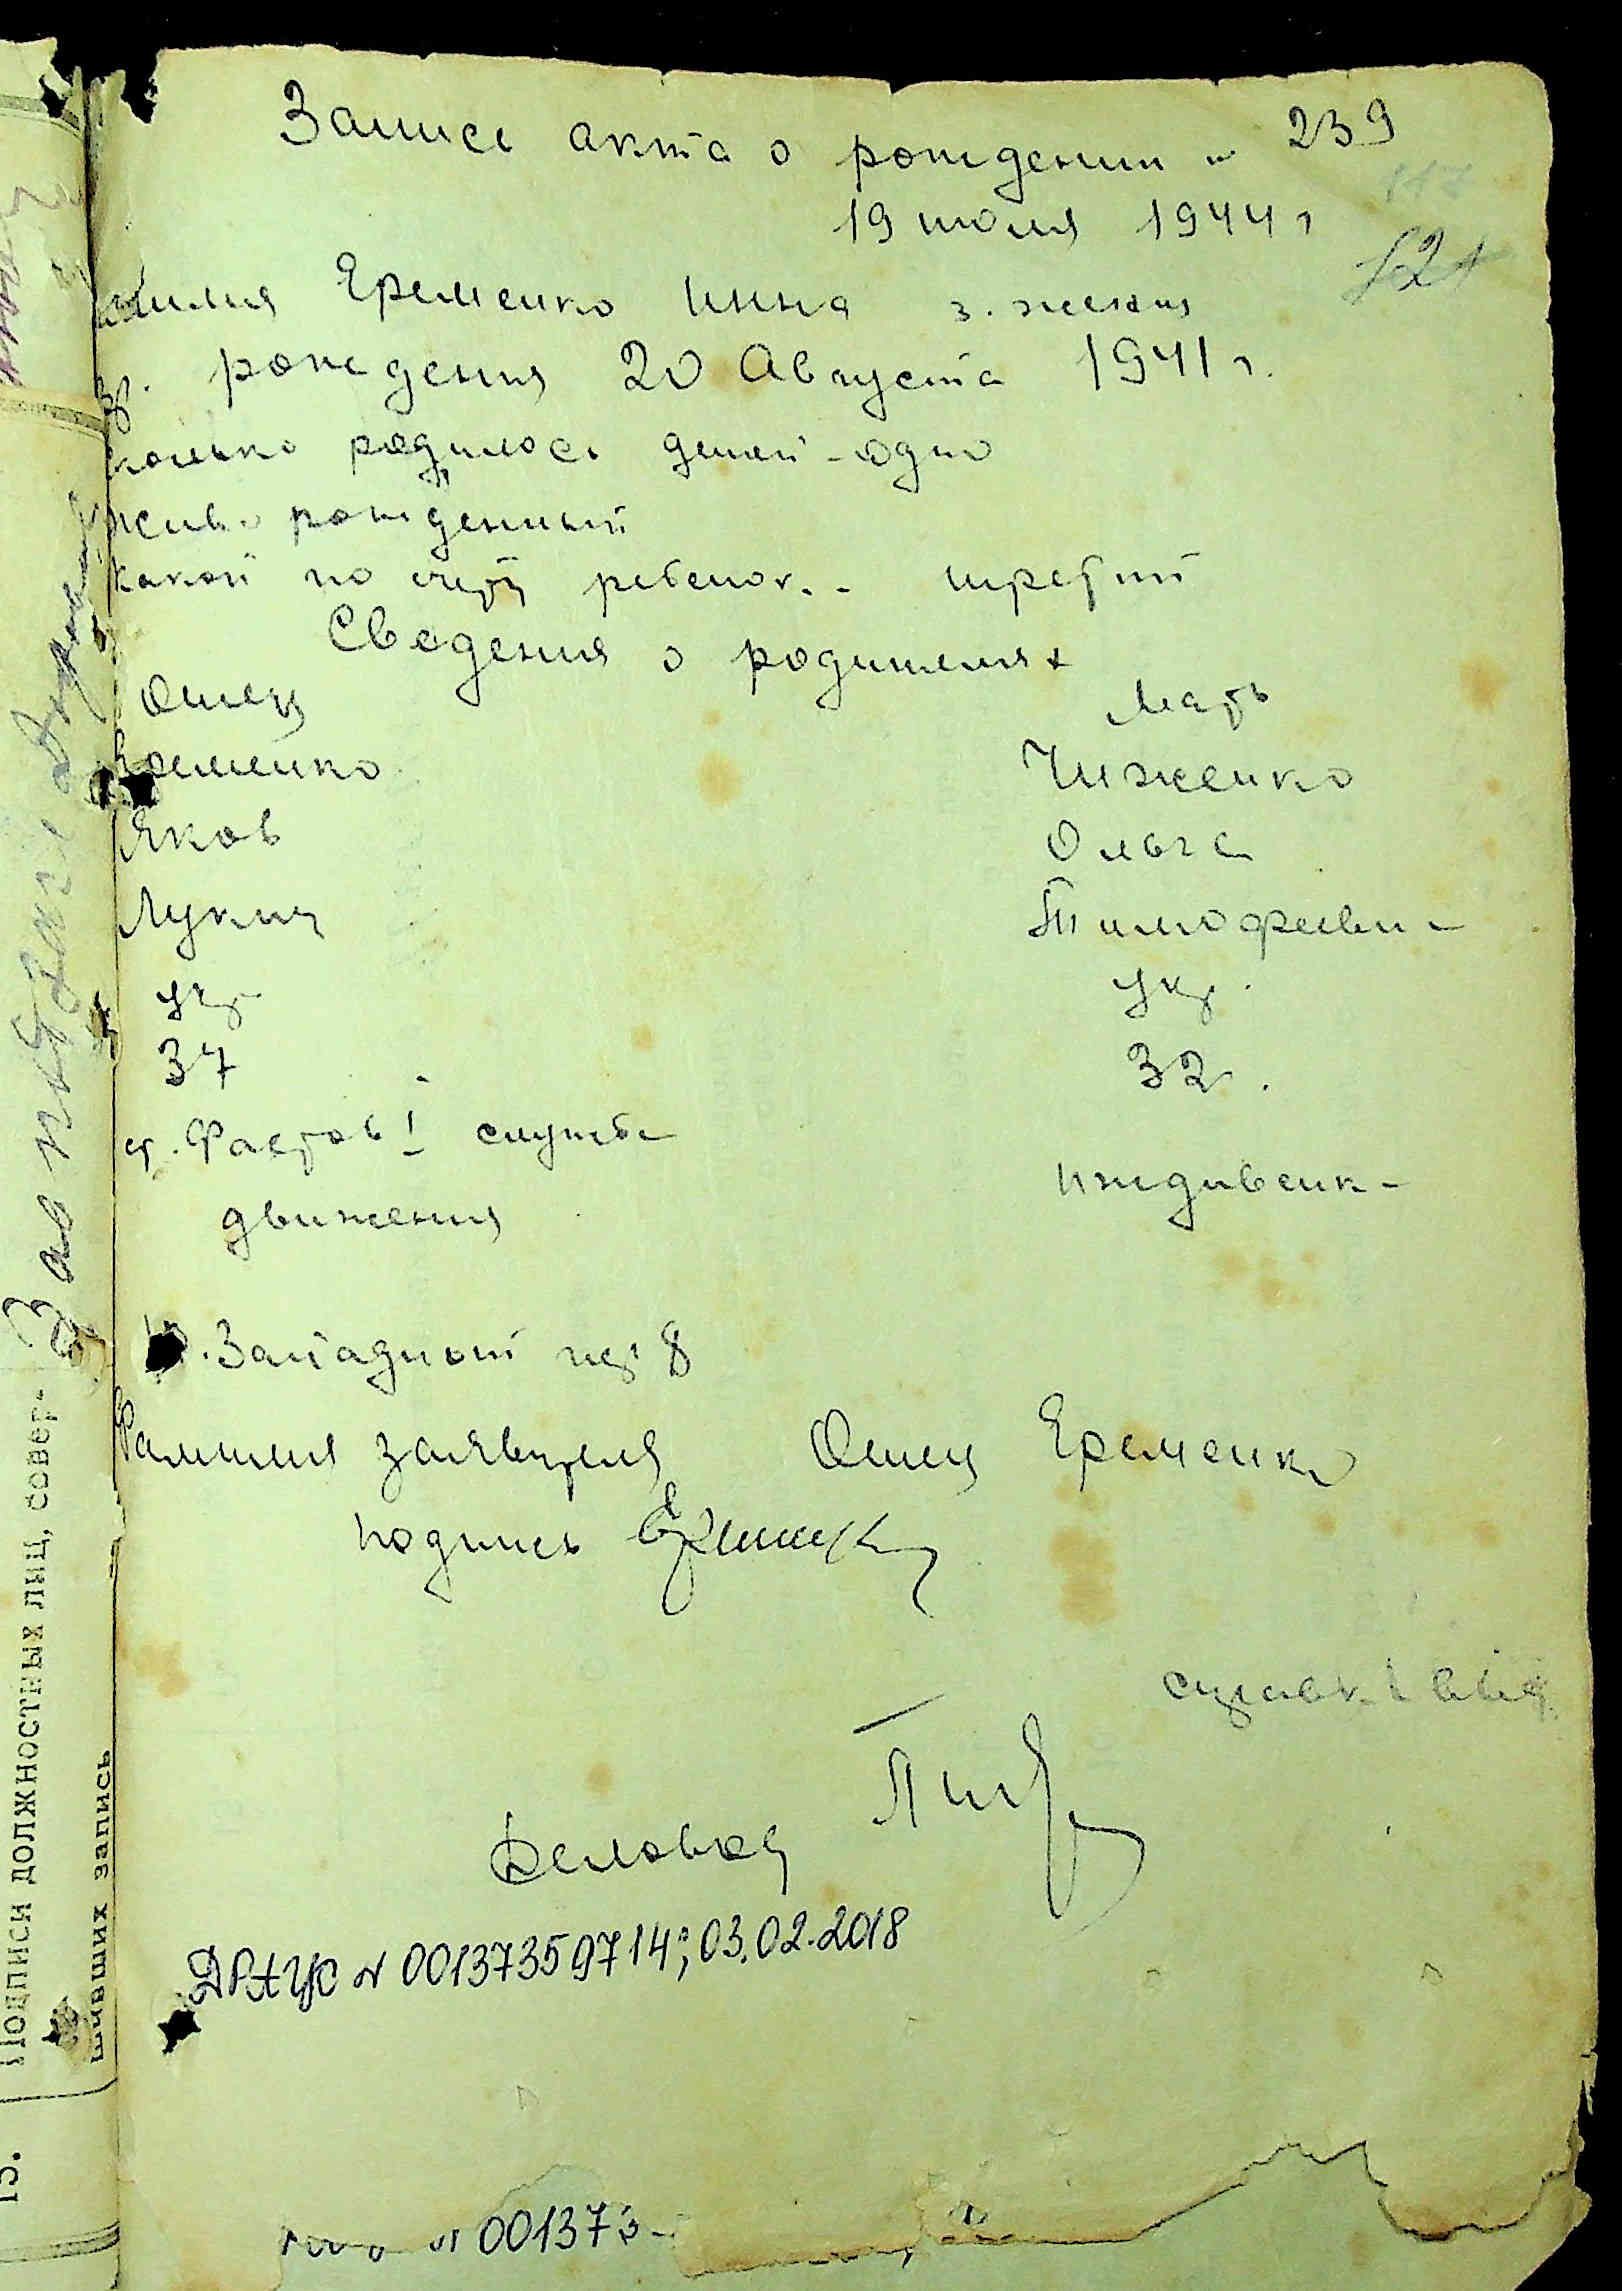 Запись акта о рождении № 239
19 июля 1944 г
милия Еременко Инна з. женския
вр. рождения 20 Августа 1941 г.
сколько родилось детей - одно
живо рожденный
какой по счету ребенок - третий
Сведения о родителях
Отец Мать
Еременко Чиженко
Яков Ольга
Лукич Тимофеевн -
укр укр.
37 32.
ст. Фастов I служба
движения Иждивенк -
Западный пер 8
Фамилия заявителя Отец Еременко
подпись
Деловод
ДРАЦС № 00137359714; 03.02.2018
№ 001373
Зав
Подписи должностных лиц, совер-
шивших запись
15.